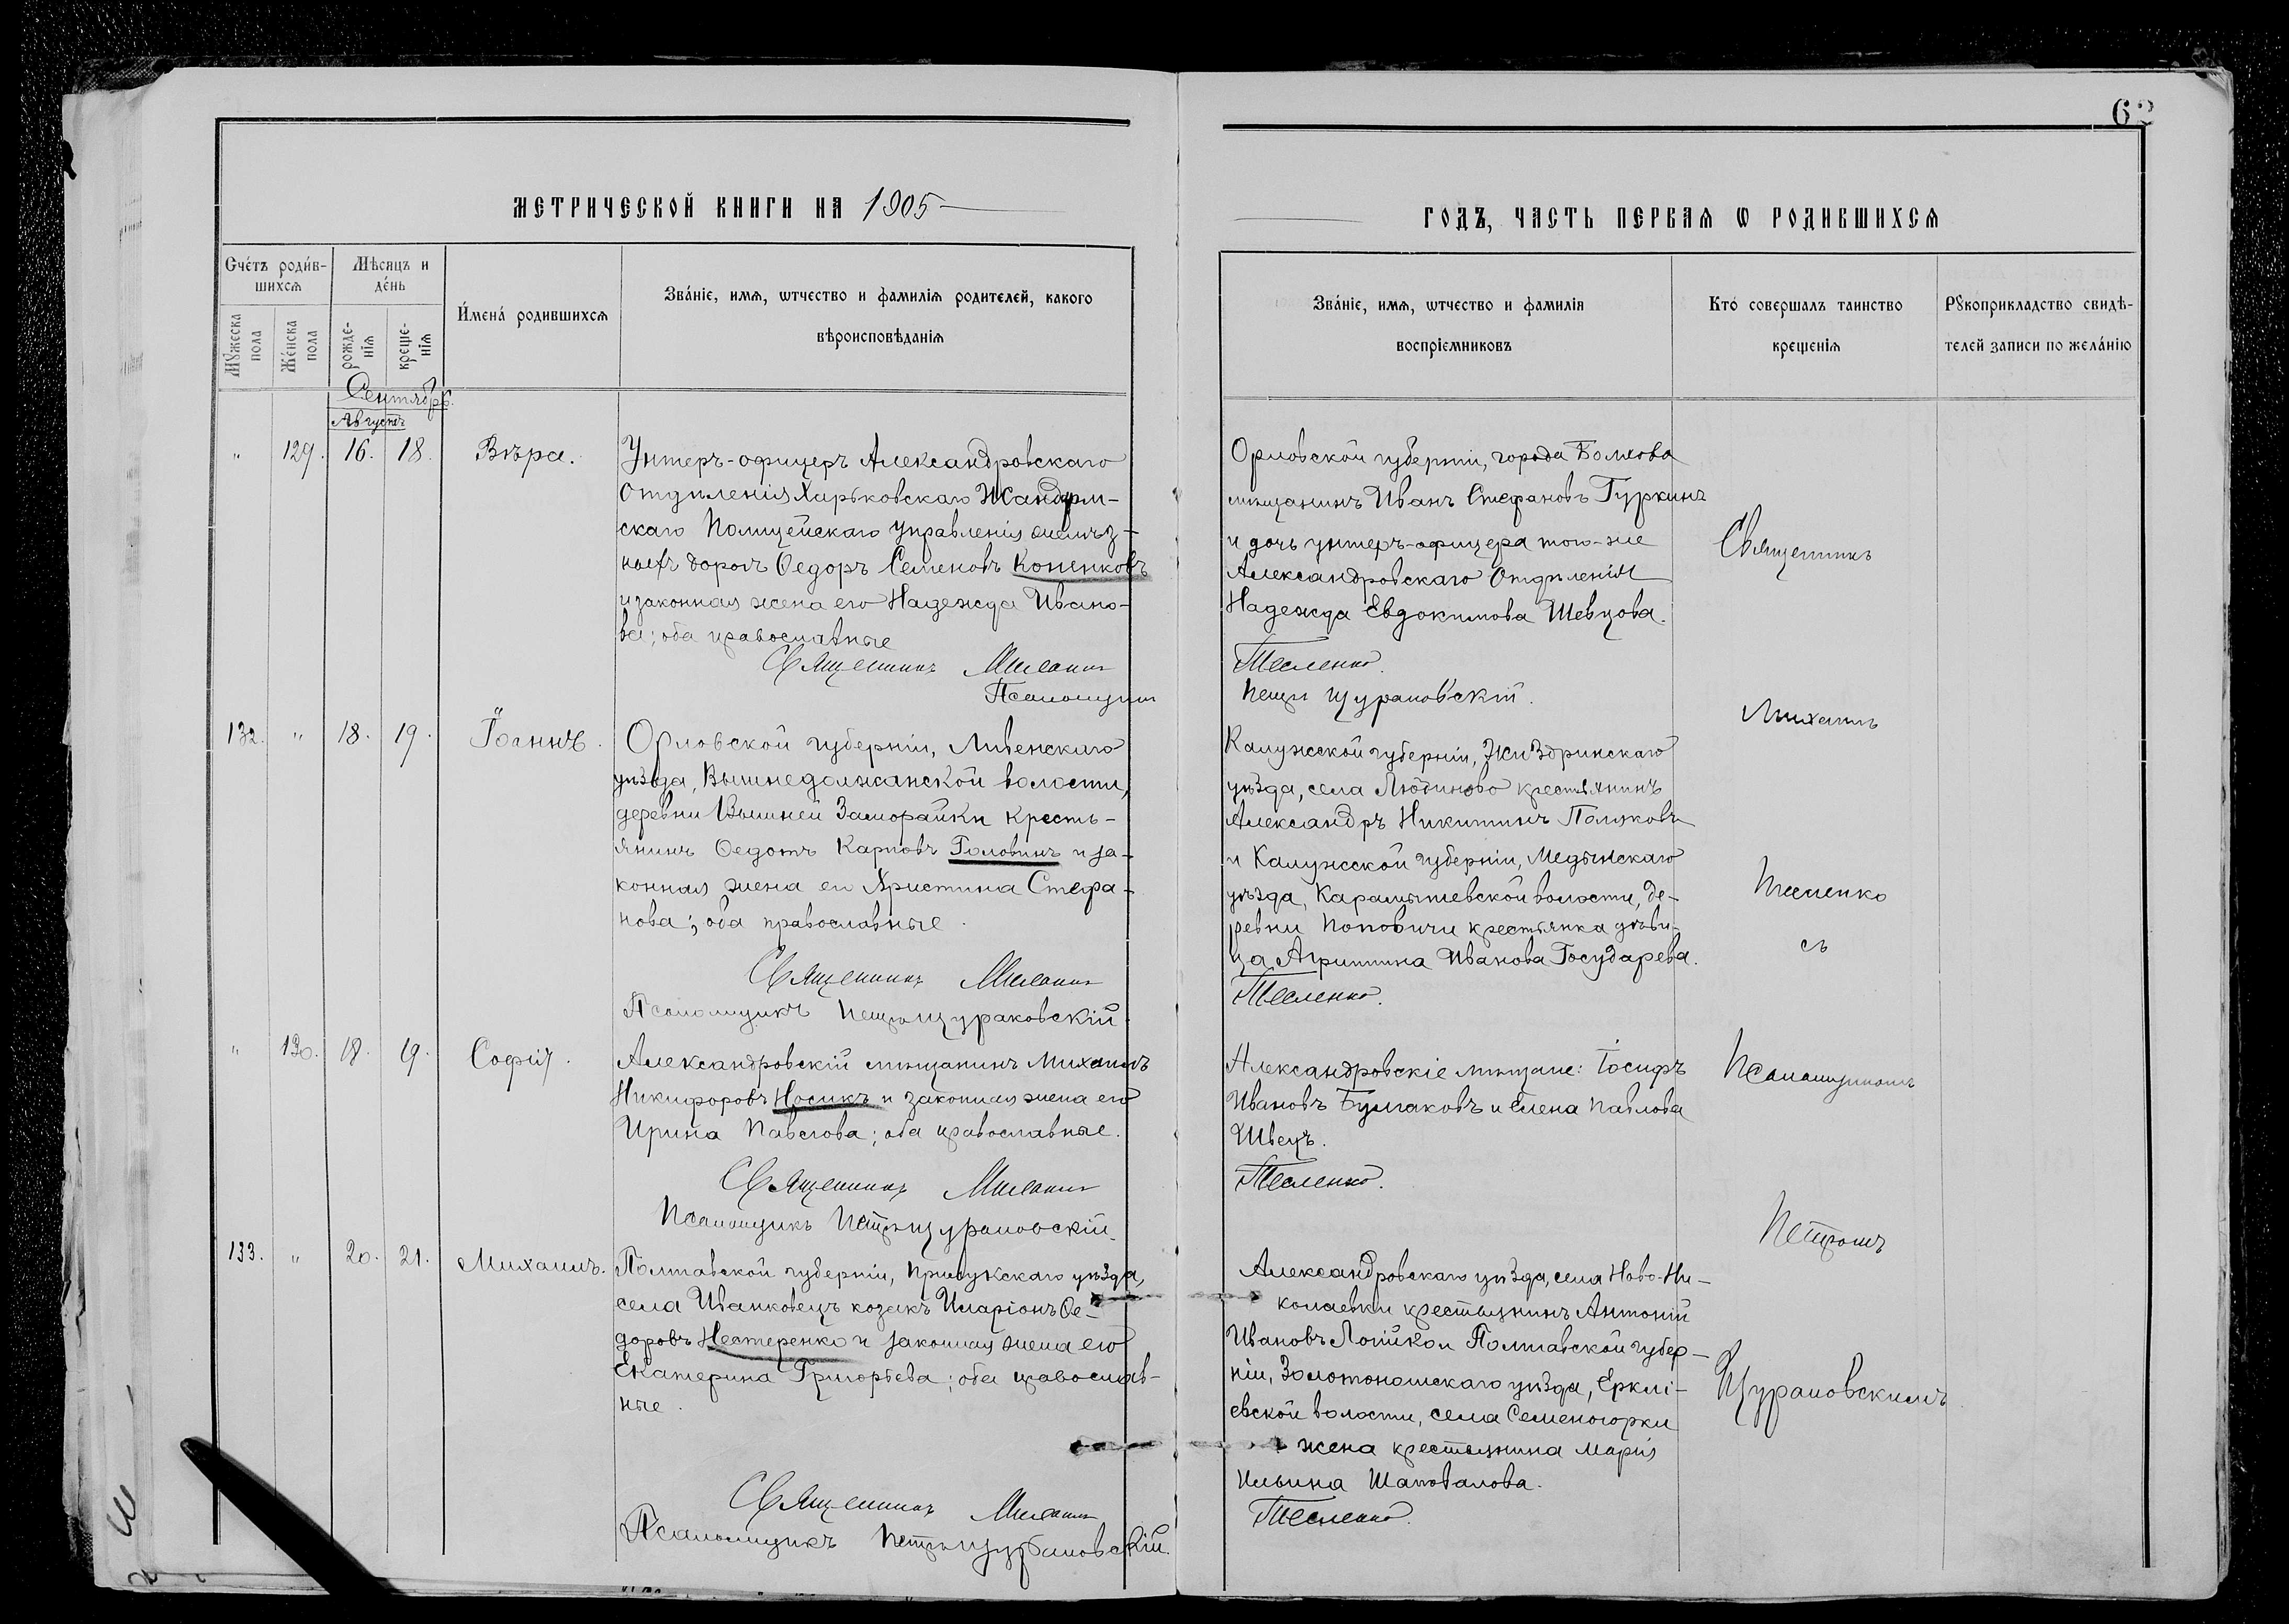 62
МЕТРИЧЕСКОЙ КНИГИ НА 1905
ГОДЪ, ЧАСТЬ ПЕРВАЯ Ѡ РОДИВШИХСЯ
Счетъ родив-
шихся
Мужеска пола
Женска пола
Мѣсяцъ и
день
рожде-
нія
креще-
нія
Имена родившихся
Званіе, имя, ѡтчество и фамилія родителей, какого
вѣроисповѣданія
Званіе, имя, ѡтчество и фамилія
воспріемниковъ
Кто совершалъ таинство
крещенія
Рукоприкладство свидѣ-
телей записи по желанію
Сентябрь.
Августъ
" 129. 16. 18. Вѣра.
Унтеръ-офицеръ Александровскаго
Отдѣленія Харьковскаго Жандарм-
скаго Полицейскаго Управленія желѣз-
ныхъ дорогъ Ѳедоръ Семеновъ Коненковъ
и законная жена его Надежда Ивано-
ва; оба православные
Священникъ Михаилъ
Псаломщикъ
Орловской губерніи, города Болхова
мѣщанинъ Иванъ Стефановъ Гуркинъ
и дочь унтеръ-офицера того-же
Александровскаго Отдѣленія
Надежда Евдокимова Шевцова.
Тесленко.
Петръ Щурановскій.
132. " 18. 19. Іоаннъ.
Орловской губерніи, Ливенскаго
уѣзда, Вышнедолжанской волости,
деревни Вышней Заморайки кресть-
янинъ Ѳедотъ Карповъ Головинъ и за-
конная жена его Христина Стефа-
нова; оба православные.
Священникъ Михаилъ
Псаломщикъ Петръ Щурановскій.
Калужской губерніи, Жиздринскаго
уѣзда, села Людиново крестьянинъ
Александръ Никитинъ Поляковъ
и Калужской губерніи, Медынскаго
уѣзда, Карамышевской волости, де-
ревни Поповичи крестьянка дѣви-
ца Агриппина Иванова Государева.
Тесленко.
" 130. 18. 19. Софія.
Александровскій мѣщанинъ Михаилъ
Никифоровъ Носикъ и законная жена его
Ирина Павлова; оба православные.
Священникъ Михаилъ
Псаломщикъ Петръ Щурановскій.
Александровскіе мѣщане: Іосифъ
Ивановъ Булгаковъ и Елена Павлова
Швецъ.
Тесленко.
133. " 20. 21. Михаилъ.
Полтавской губерніи, Прилукскаго уѣзда,
села Иванковецъ козакъ Иларіонъ Ѳе-
доровъ Нестеренко и законная жена его
Екатерина Григорьева; оба православ-
ные.
Священникъ Михаилъ
Псаломщикъ Петръ Щурановскій.
Александровскаго уѣзда, села Ново-Ни-
колаевки крестьянинъ Антоній
Ивановъ и Полтавской губер-
ніи, Золотоношскаго уѣзда, Еркли-
евской волости, села Семеногорки
жена крестьянина Марія
Ильина Шаповалова.
Тесленко.
Священникъ
Михаилъ
Тесленко
съ
Псаломщикомъ
Петромъ
Щурановскимъ